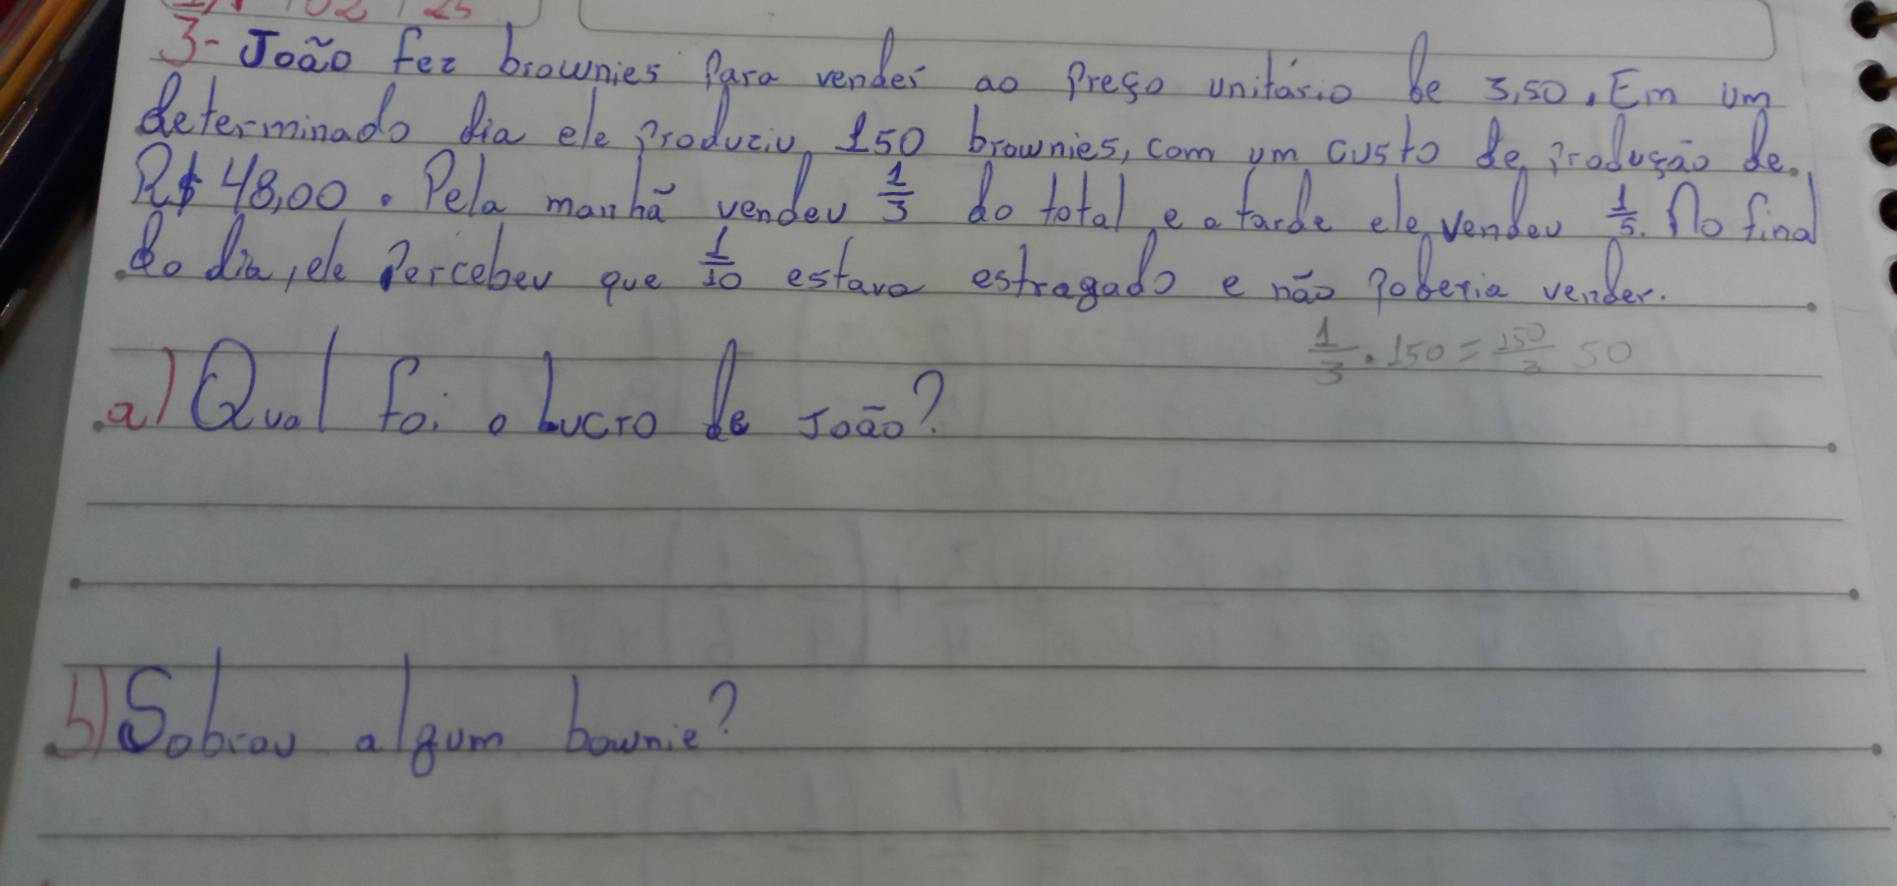 3- João fez brownies para vender ao preço unitário de 3,50. Em um
determinado dia ele produziu 150 brownies, com um custo de produção de
R$ 48,00. Pela manhã vendeu 1/3 do total e a tarde ele vendeu 1/5. No final
do dia, ele percebeu que 1/10 estava estragado e não poderia vender.
1/3 . 150 = 150/3 50
a) Qual foi o Lucro de João?
b) Sobrou algum bownie?